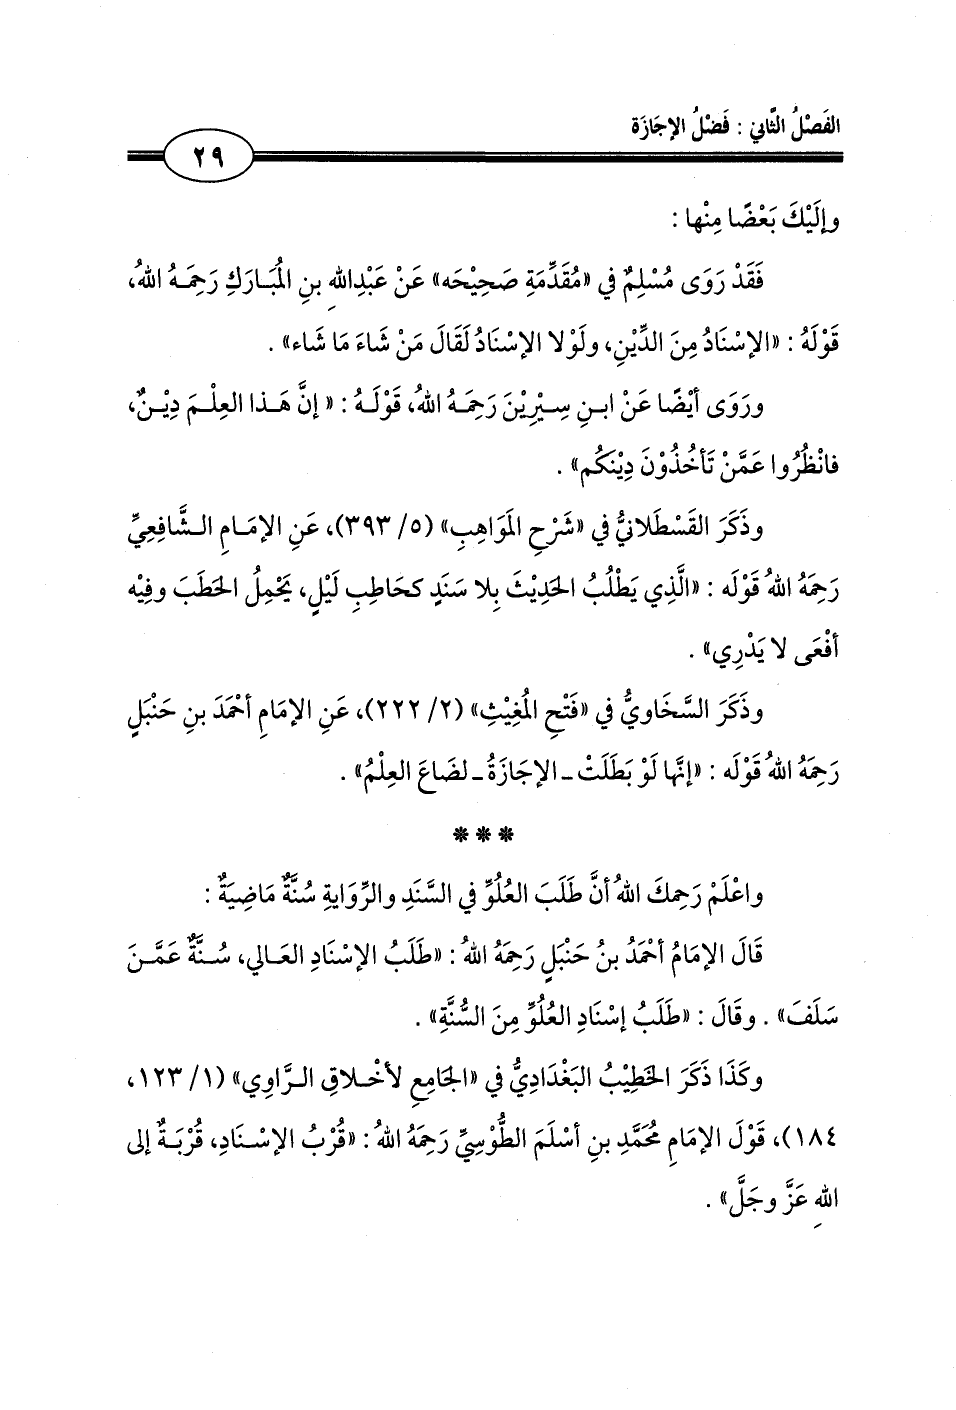 الفَصْلُ الثَّاني : فَضْلُ الإجَازَة
٢٩
وإلَيْكَ بَعْضًا مِنْها :
فَقَدْ رَوَى مُسْلِمٌ في «مُقَدِّمَةِ صَحِيْحَه» عَنْ عَبْدِاللهِ بنِ المُبَارَكِ رَحِمَهُ اللهُ،
قَوْلَهُ : «الإسْنَادُ مِنَ الدِّيْنِ، ولَوْلا الإسْنَادُ لَقَالَ مَنْ شَاءَ مَا شَاء» .
ورَوَى أيْضًا عَنْ ابنِ سِيْرِيْنَ رَحِمَهُ اللهُ، قَوْلَهُ : « إنَّ هَذا العِلْمَ دِيْنٌ،
فانْظُرُوا عَمَّنْ تَأخُذُوْنَ دِيْنَكُم» .
وذَكَرَ القَسْطَلانيُّ في «شَرْحِ المَوَاهِبِ» (٥/ ٣٩٣)، عَنِ الإمَامِ الشَّافِعِيِّ
رَحِمَهُ اللهُ قَوْلَه : «الَّذِي يَطْلُبُ الحَدِيْثَ بِلا سَنَدٍ كحَاطِبِ لَيْلٍ، يَحْمِلُ الحَطَبَ وفِيْه
أفْعَى لا يَدْرِي» .
وذَكَرَ السَّخَاويُّ في «فَتْحِ المُغِيْثِ» (٢/ ٢٢٢)، عَنِ الإمَامِ أحْمَدَ بنِ حَنْبَلٍ
رَحِمَهُ اللهُ قَوْلَه : «إنَّها لَوْ بَطَلَتْ ـ الإجَازَةُ ـ لضَاعَ العِلْمُ» .
* * *
واعْلَمْ رَحِمكَ اللهُ أنَّ طَلَبَ العُلُوِّ في السَّنَدِ والرِّوَايةِ سُنَّةٌ مَاضِيَةٌ :
قَالَ الإمَامُ أحْمَدُ بنُ حَنْبَلٍ رَحِمَهُ اللهُ : «طَلَبُ الإسْنَادِ العَالي، سُنَّةٌ عَمَّنَ
سَلَفَ» . وقَالَ : «طَلَبُ إسْنَادِ العُلُوِّ مِنَ السُّنَّةِ» .
وكَذَا ذَكَرَ الخَطِيْبُ البَغْدَادِيُّ في «الجَامِعِ لأخْلاقِ الرَّاوِي» (١/ ١٢٣،
١٨٤)، قَوْلَ الإمَامِ مُحَمَّدِ بنِ أسْلَمَ الطُّوْسِيِّ رَحِمَهُ اللهُ : «قُرْبُ الإسْنَادِ، قُرْبَةٌ إلى
اللهِ عَزَّ وجَلَّ» .